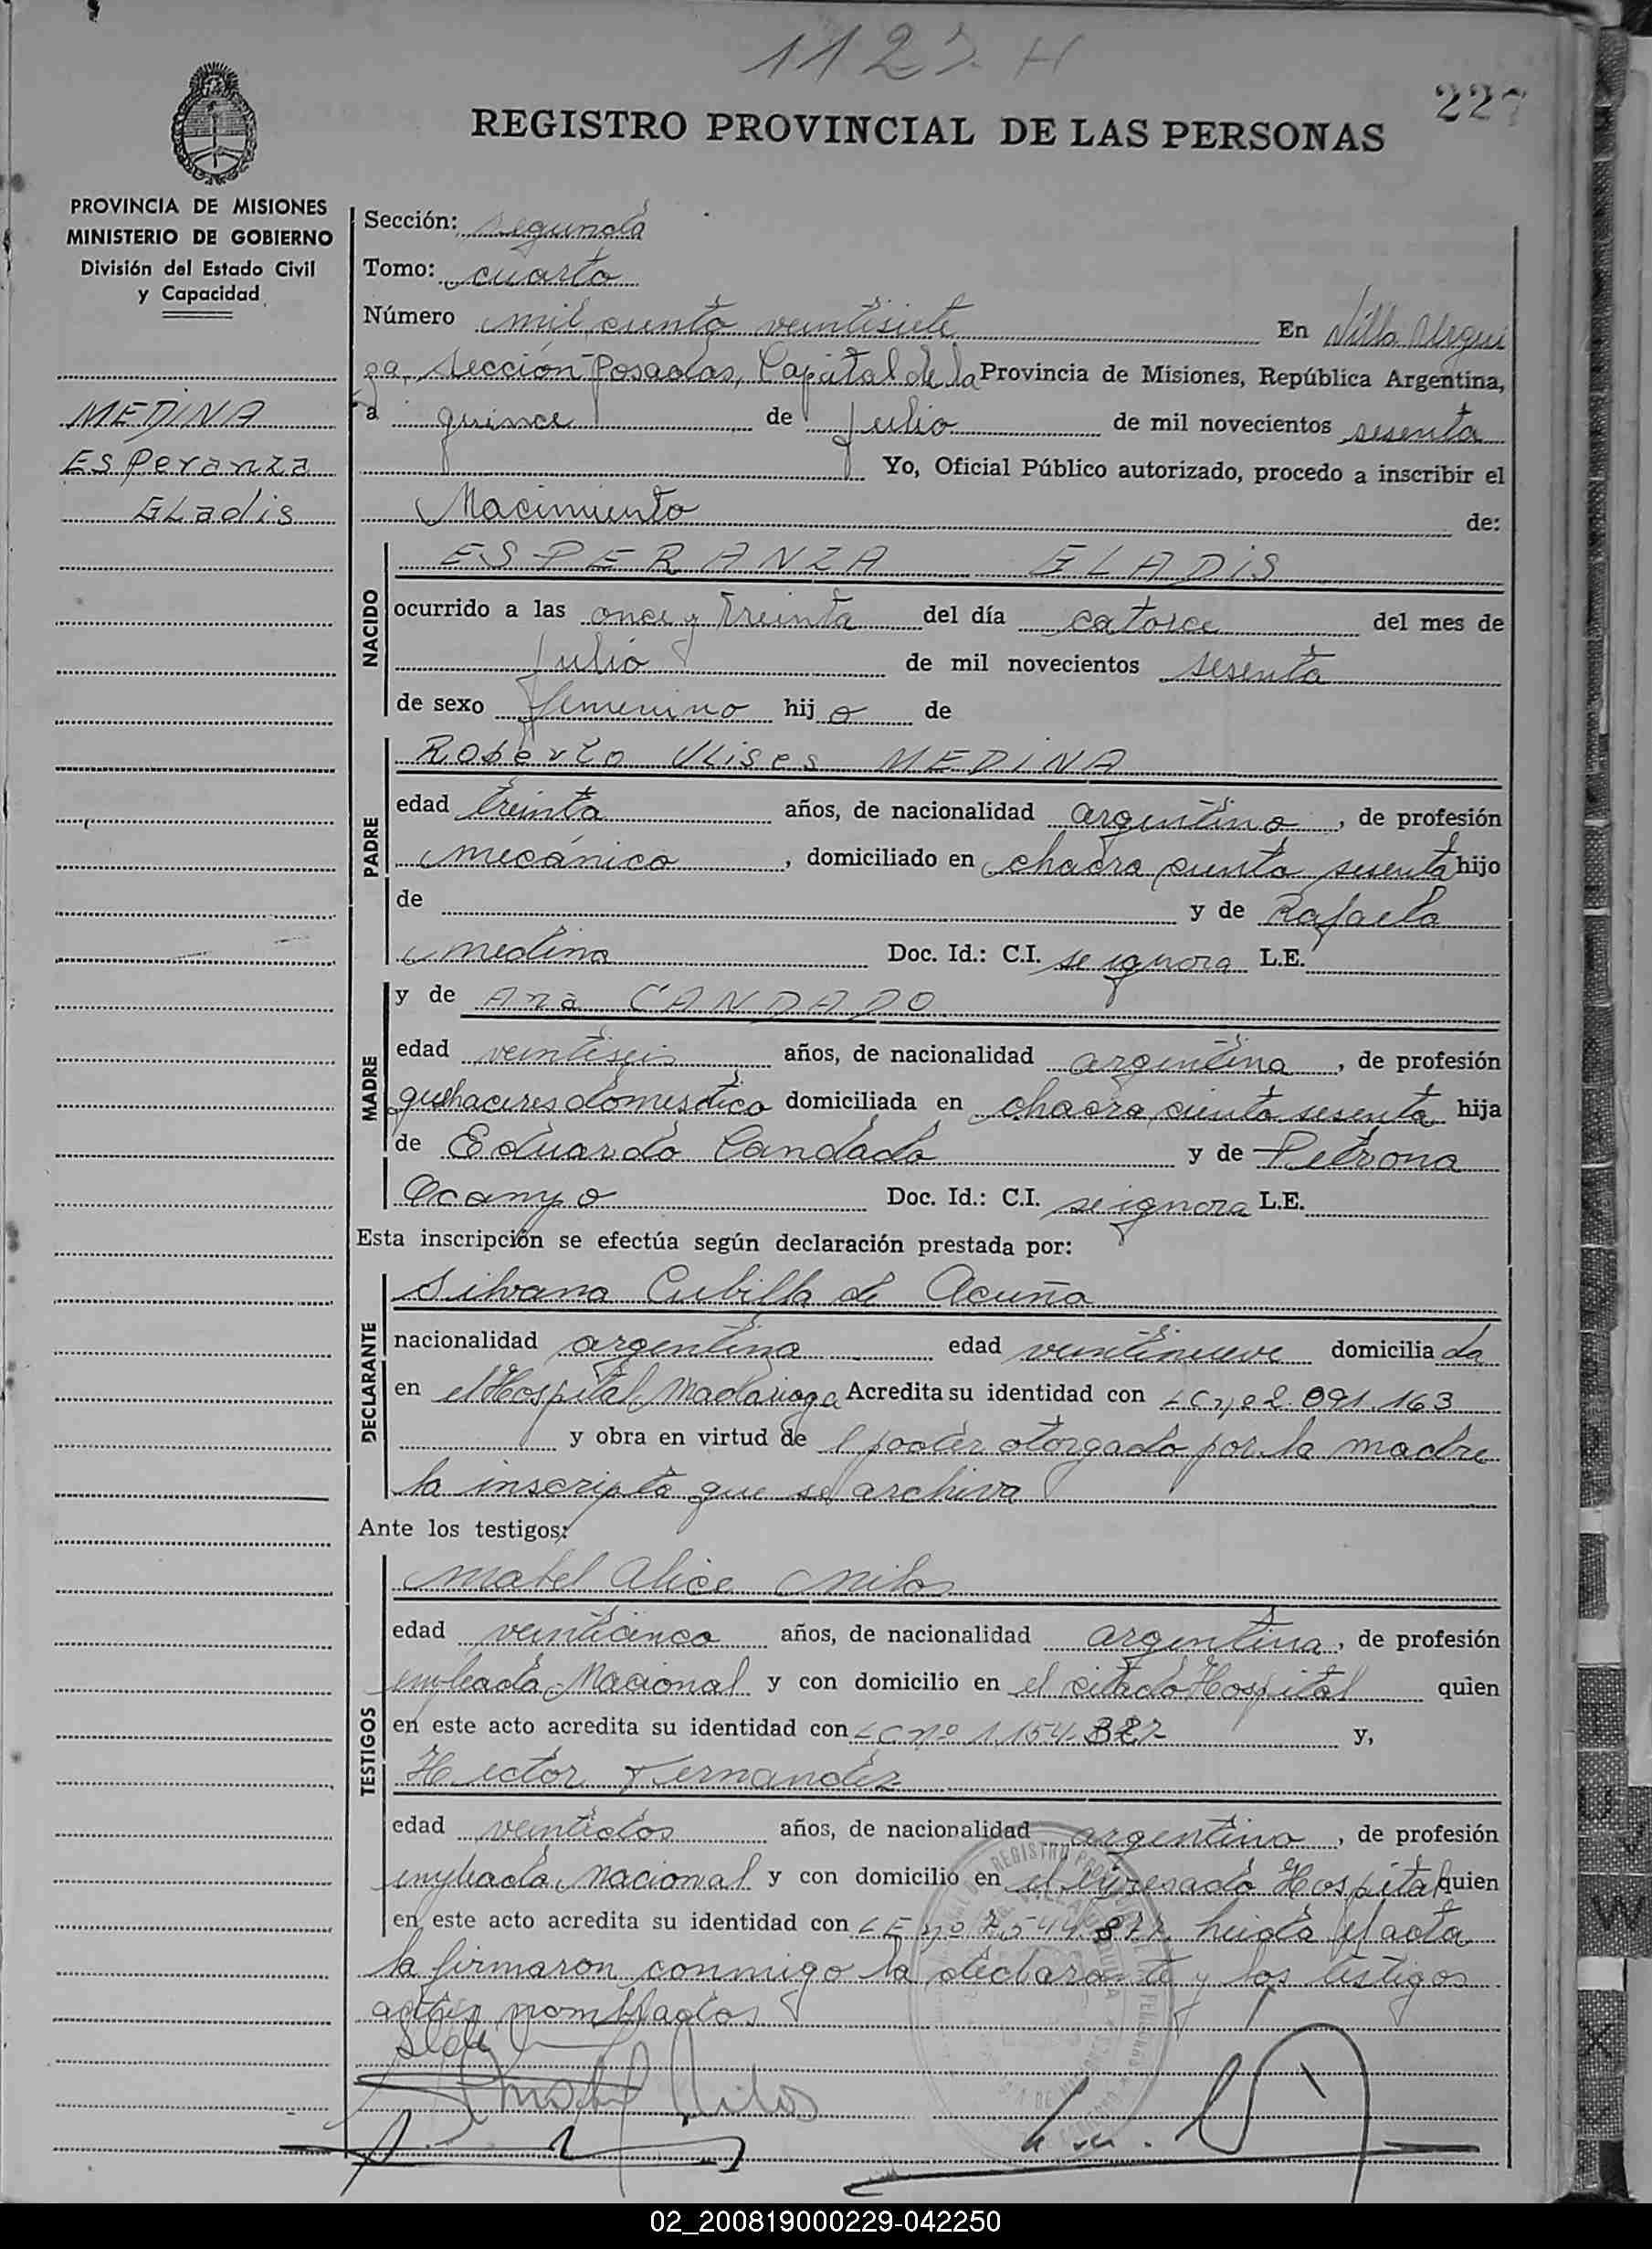 1127 H
227
REGISTRO PROVINCIAL DE LAS PERSONAS
PROVINCIA DE MISIONES
MINISTERIO DE GOBIERNO
División del Estado Civil
y Capacidad
MEDINA
Esperanza
GLadis
Sección: segunda
Tomo: cuarto
Número mil ciento veintisiete En Villa Urqui
za, Sección Posadas, Capital de la Provincia de Misiones, República Argentina,
a quince de Julio de mil novecientos sesenta
Yo, Oficial Público autorizado, procedo a inscribir el
Nacimiento de:
NACIDO
ESPERANZA GLADIS
ocurrido a las once y treinta del día catorce del mes de
Julio de mil novecientos sesenta
de sexo femenino hij a de
PADRE
Roberto ULises MEDINA
edad treinta años, de nacionalidad argentino, de profesión
mecánico, domiciliado en chacra ciento sesenta hijo
de y de Rafaela
medina Doc. Id.: C.I. se ignora L.E.
MADRE
y de Ana CANDADO
edad veintiseis años, de nacionalidad argentina, de profesión
quehaceres domestico domiciliada en chacra ciento sesenta hija
de Eduardo Candado y de Petrona
Ocampo Doc. Id.: C.I. se ignora L.E.
Esta inscripción se efectúa según declaración prestada por:
DECLARANTE
Silvana Cubilla de Acuña
nacionalidad argentina edad veintinueve domicilia da
en el Hospital Madariaga Acredita su identidad con LC nº 2.091.163
y obra en virtud de l poder otorgado por la madre
la inscripta que se archiva
Ante los testigos:
TESTIGOS
Mabel Alice Milos
edad veinticinco años, de nacionalidad argentina, de profesión
empleada Nacional y con domicilio en el citado Hospital quien
en este acto acredita su identidad con LC nº 1.154.327 y,
Hector Fernandez
edad veintidos años, de nacionalidad argentino, de profesión
empleado nacional y con domicilio en el expresado Hospital quien
en este acto acredita su identidad con LE nº 7.544.877 leida el acta
la firmaron conmigo la declarante y los testigos
antes nombrados
Mabel Milos
02_200819000229-042250